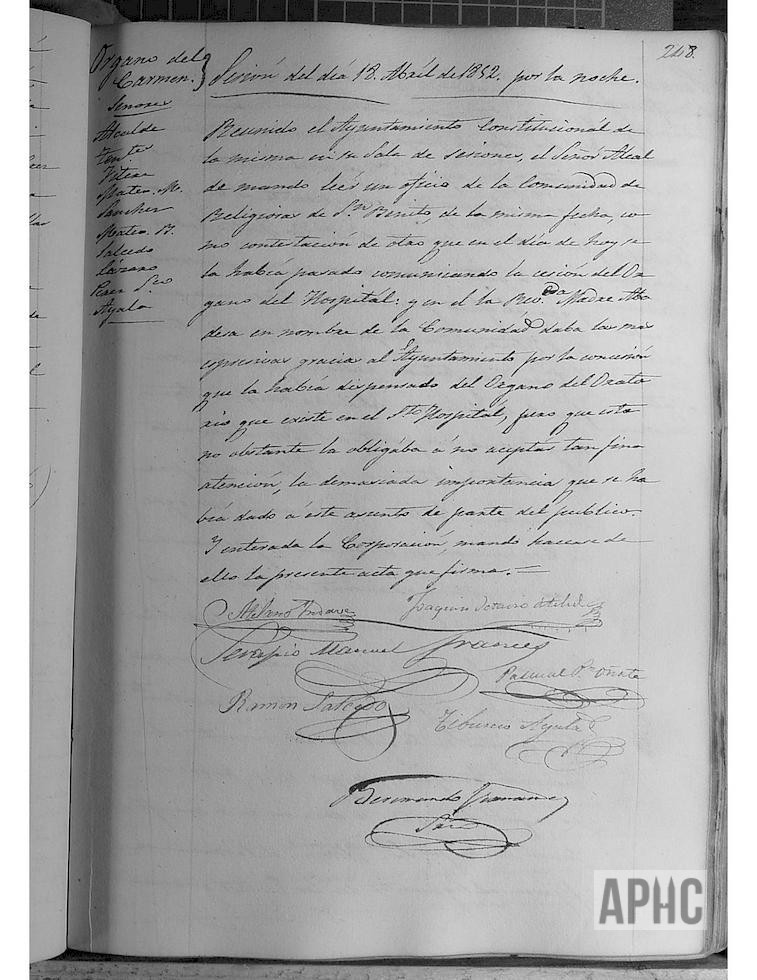 248.
Organo del
Carmen.
Señores
Alcalde
Mateo. M.
Sanchez
Mateo. B.
Salcedo
Lázaro
Perez Srio
Ayala
Sesión del día 18. Abril de 1852. por la noche.
Reunido el Ayuntamiento Constitucionál de
la misma en su Sala de sesiones, el Señor Alcal
de mando leér un oficio de la Comunidad de
Religiosas de Sn Benito de la misma fecha, co
mo contestación de otro que en el día de hoy se
la había pasado comunicando la cesión del Or
gano del Hospitál: y en el la Revda Madre Aba
desa en nombre de la Comunidad daba las mas
espresivas gracias al Ayuntamiento por la concesión
que la había dispensado del Organo del Orato
rio que existe en el Sto Hospitál, pero que esto
no obstante la obligába á no aceptár tan fina
atención, la demasiada importancia, que se ha
bía dado á este asunto de parte del publico.
Y enterada la Corporacion, mandó hacerse de
ello la presente acta que firma.=
Joaquin
Serapio Manuel Frances
Pascual Pz Oñate
Ramon Salcedo
Tiburcio Ayala
Bermundo
Srio
APHC